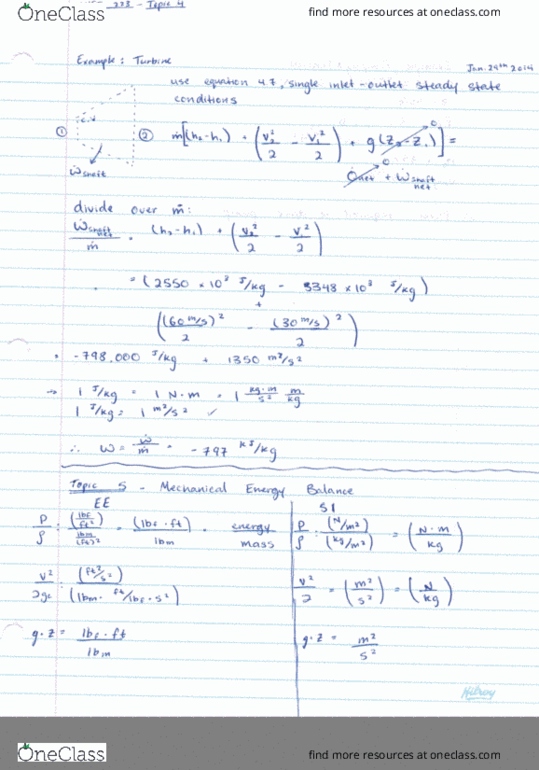 OneClass find more resources at oneclass.com
273 - Topic 4
Example: Turbine
Jan. 24th 2014
use equation 4.7, single inlet-outlet steady state
conditions
c.v
① ② ṁ[(h₂-h₁) + (V₂²/2 - V₁²/2) + g(z₂-z₁)] =
0
0
Ẇshaft
Q̇net + Ẇshaft net
divide over ṁ:
Ẇshaft net / ṁ = (h₂-h₁) + (V₂²/2 - V₁²/2)
= (2550 × 10³ J/kg - 3348 × 10³ J/kg)
+
((60 m/s)²/2 - (30 m/s)²/2)
= -798,000 J/kg + 1350 m²/s²
→ 1 J/kg = 1 N·m = 1 kg·m/s² m/kg
1 J/kg = 1 m²/s² ✓
∴ w = ẇ/ṁ = -797 kJ/kg
Topic 5 - Mechanical Energy Balance
EE SI
P/ρ : (lbf/ft²)/(lbm/(ft)³) = (lbf·ft)/lbm = energy/mass
P/ρ : (N/m²)/(kg/m³) = (N·m/kg)
V²/2gc = (ft²/s²)/(lbm·ft/lbf·s²)
V²/2 = (m²/s²) = (N/kg)
g·z = lbf·ft/lbm
g·z = m²/s²
Hilroy
OneClass find more resources at oneclass.com